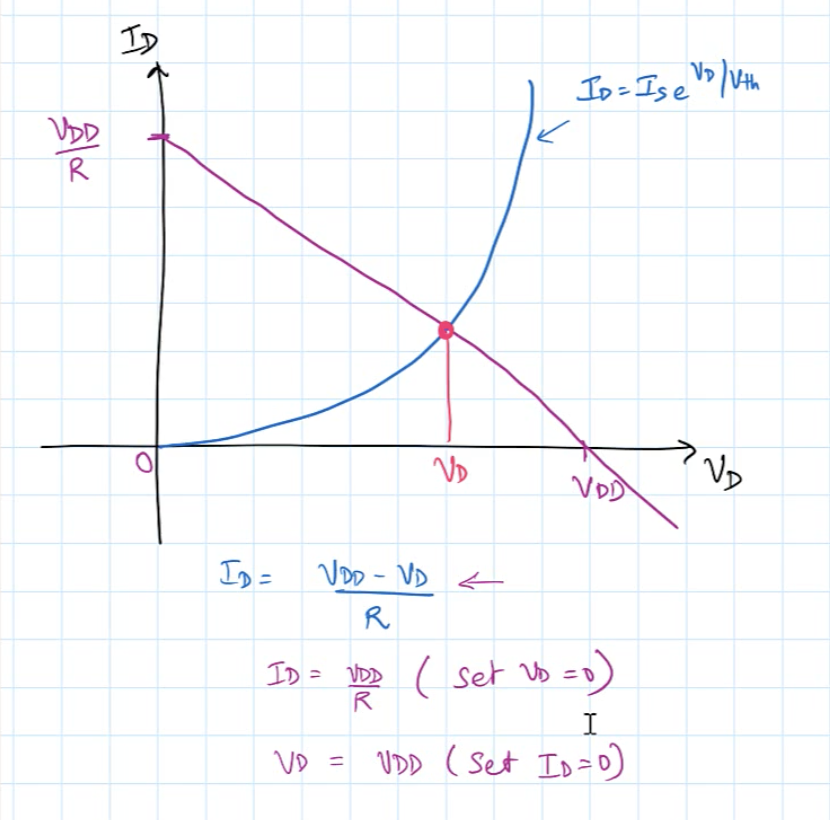 ID
ID = IS e^VD/Vth
VDD/R
0
VD
VDD
VD
ID = VDD - VD / R ←
ID = VDD/R ( set VD = 0)
VD = VDD (set ID = 0)